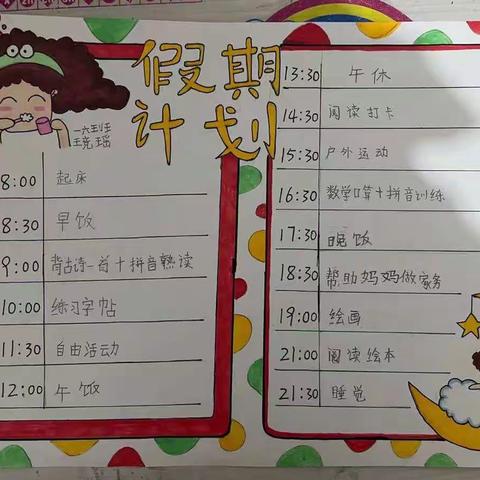 假期
计划
一六班
8:00 起床
8:30 早饭
9:00 背古诗一首+拼音熟读
10:00 练习字帖
11:30 自由活动
12:00 午饭
13:30 午休
14:30 阅读打卡
15:30 户外运动
16:30 数学口算+拼音训练
17:30 晚饭
18:30 帮助妈妈做家务
19:00 绘画
21:00 阅读绘本
21:30 睡觉